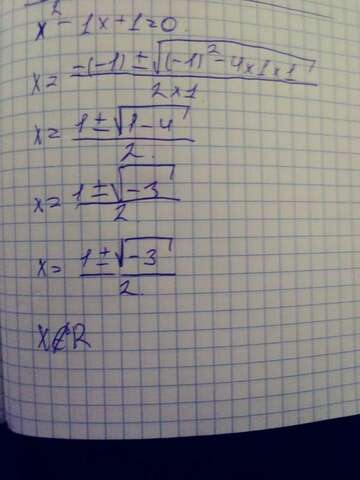 x² - 1x + 1 = 0
x = -(-1) ± √((-1)² - 4x1x1) / 2x1
x = 1 ± √(1-4) / 2
x = 1 ± √(-3) / 2
x = 1 ± √(-3) / 2
x∉R